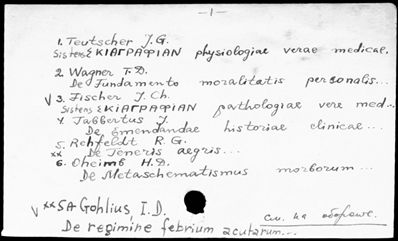 — 1 —
1. Teutscher J.G.
Sistens ΣΚΙΑΓΡΑΦΙΑΝ physiologiae verae medicae.
2. Wagner T.D.
De Fundamento moralitatis personalis...
√ 3. Fischer J. Ch.
Sistens ΣΚΙΑΓΡΑΦΙΑΝ pathologiae vere med...
4 Jabbertus J.
De emendandae historiae clinicae...
5. Rehfeldt R.G.
xx De Teneris aegris...
6. Oheimb H.D.
De Metaschematismus morborum...
√ xx 5A Gohlius, I.D.
De regimine febrium acutarum...
см. на обороте.